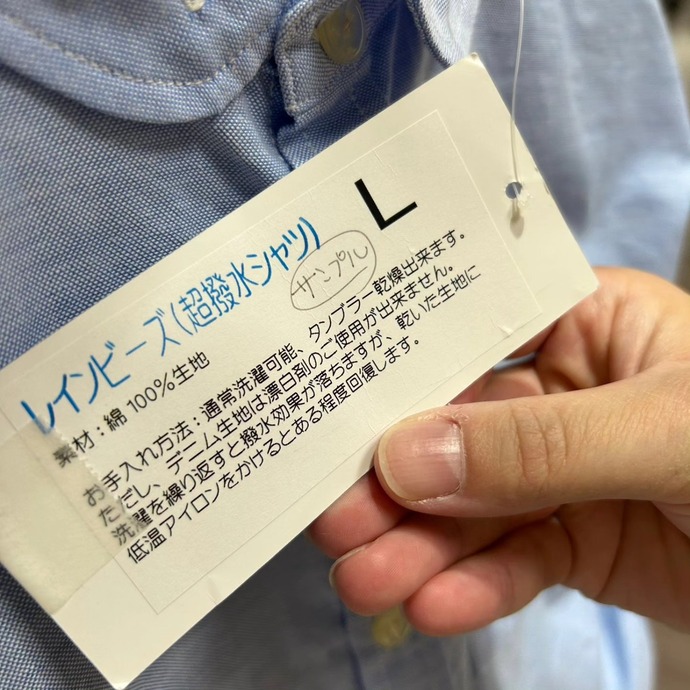 L
レインビーズ(超撥水シャツ)
サンプル
素材：綿 100％生地
お手入れ方法：通常洗濯可能、タンブラー乾燥出来ます。
ただし、デニム生地は漂白剤のご使用が出来ません。
洗濯を繰り返すと撥水効果が落ちますが、乾いた生地に
低温アイロンをかけるとある程度回復します。